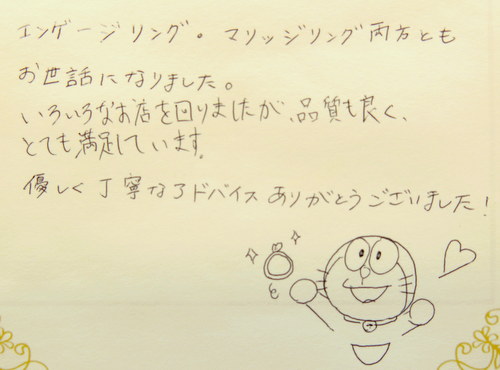 エンゲージリング。マリッジリング両方とも
お世話になりました。
いろいろなお店を回りましたが、品質も良く、
とても満足しています。
優しく丁寧なアドバイスありがとうございました!